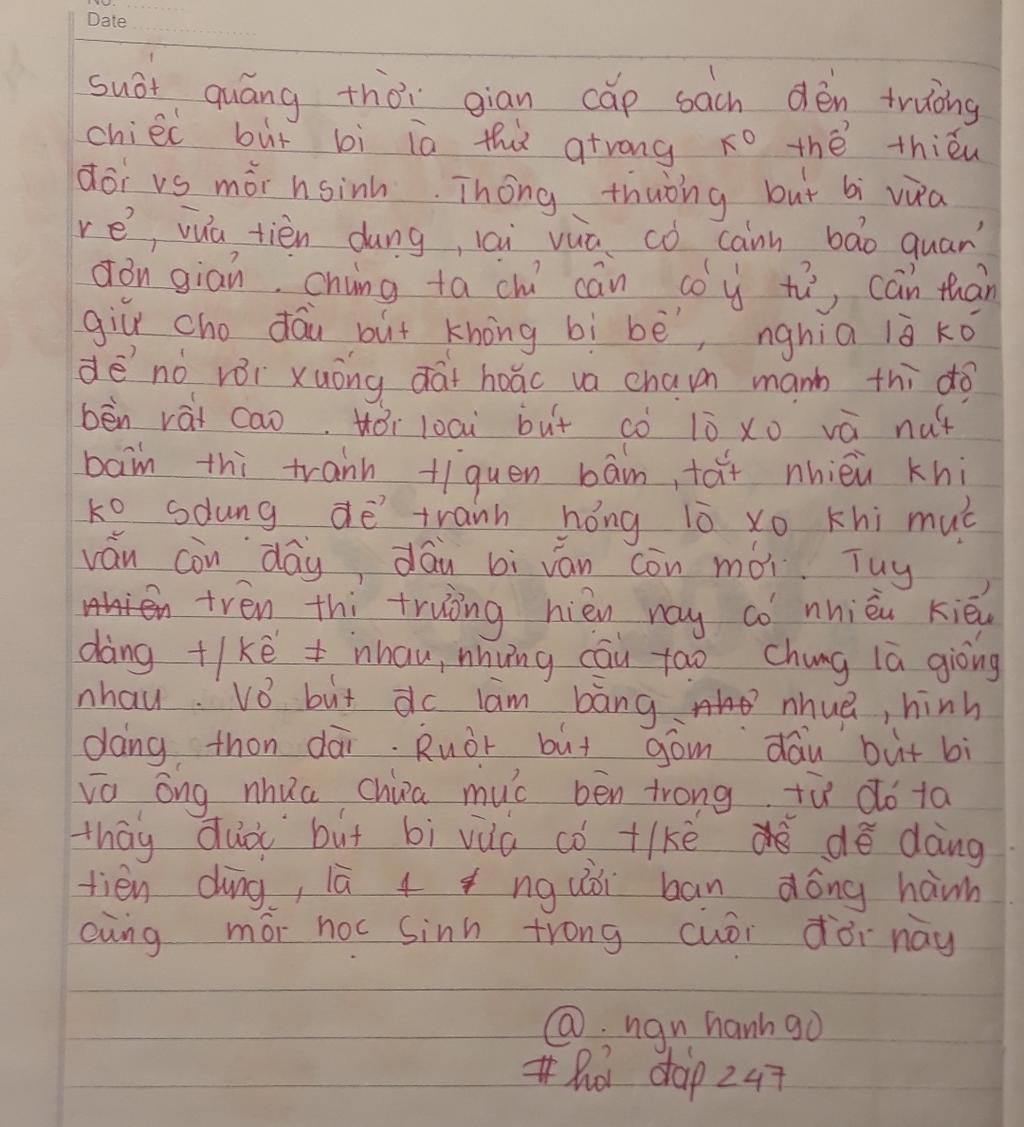 No.
Date
suốt quãng thời gian cắp sách đến trường
chiếc bút bi là thứ qtrọng ko thể thiếu
đối vs mỗi hsinh. Thông thường bút bi vừa
rẻ, vừa tiện dụng, lại vừa có cách bảo quản
đơn giản. Chúng ta chỉ cần có ý tứ, cẩn thận
giữ cho đầu bút không bị bể, nghĩa là ko
để nó rơi xuống đất hoặc va chạm mạnh thì độ
bền rất cao. Với loại bút có lò xo và nút
bấm thì tránh t/quen bấm, tắt nhiều khi
ko sdụng để tránh hỏng lò xo khi mực
vẫn còn đầy, đầu bi vẫn còn mới. Tuy
nhiên trên thị trường hiện nay có nhiều kiểu
dáng t/kế ≠ nhau, nhưng cấu tạo chung là giống
nhau. Vỏ bút đc làm bằng nhưa, hình
dáng thon dài. Ruột bút gồm đầu bút bi
và ống nhựa chứa mực bên trong. từ đó ta
thấy được bút bi vừa có t/kế dễ dàng
tiện dùng, là 1 người bạn đồng hành
cùng mỗi học sinh trong cuộc đời này
@.ngn hanh90
#hỏi đáp 247